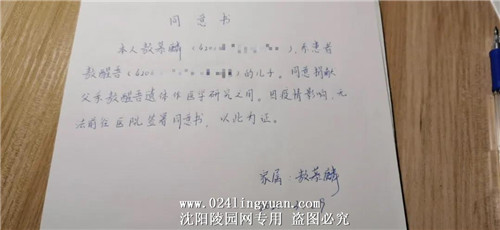 同意书
本人敖慕麟(420 ),系患者
敖醒吾(420 )的儿子。同意捐献
父亲敖醒吾遗体作医学研究之用。因疫情影响,无
法前往医院签署同意书,以此为证。
家属:敖慕麟
www.024lingyuan.com
沈阳陵园网专用 盗图必究